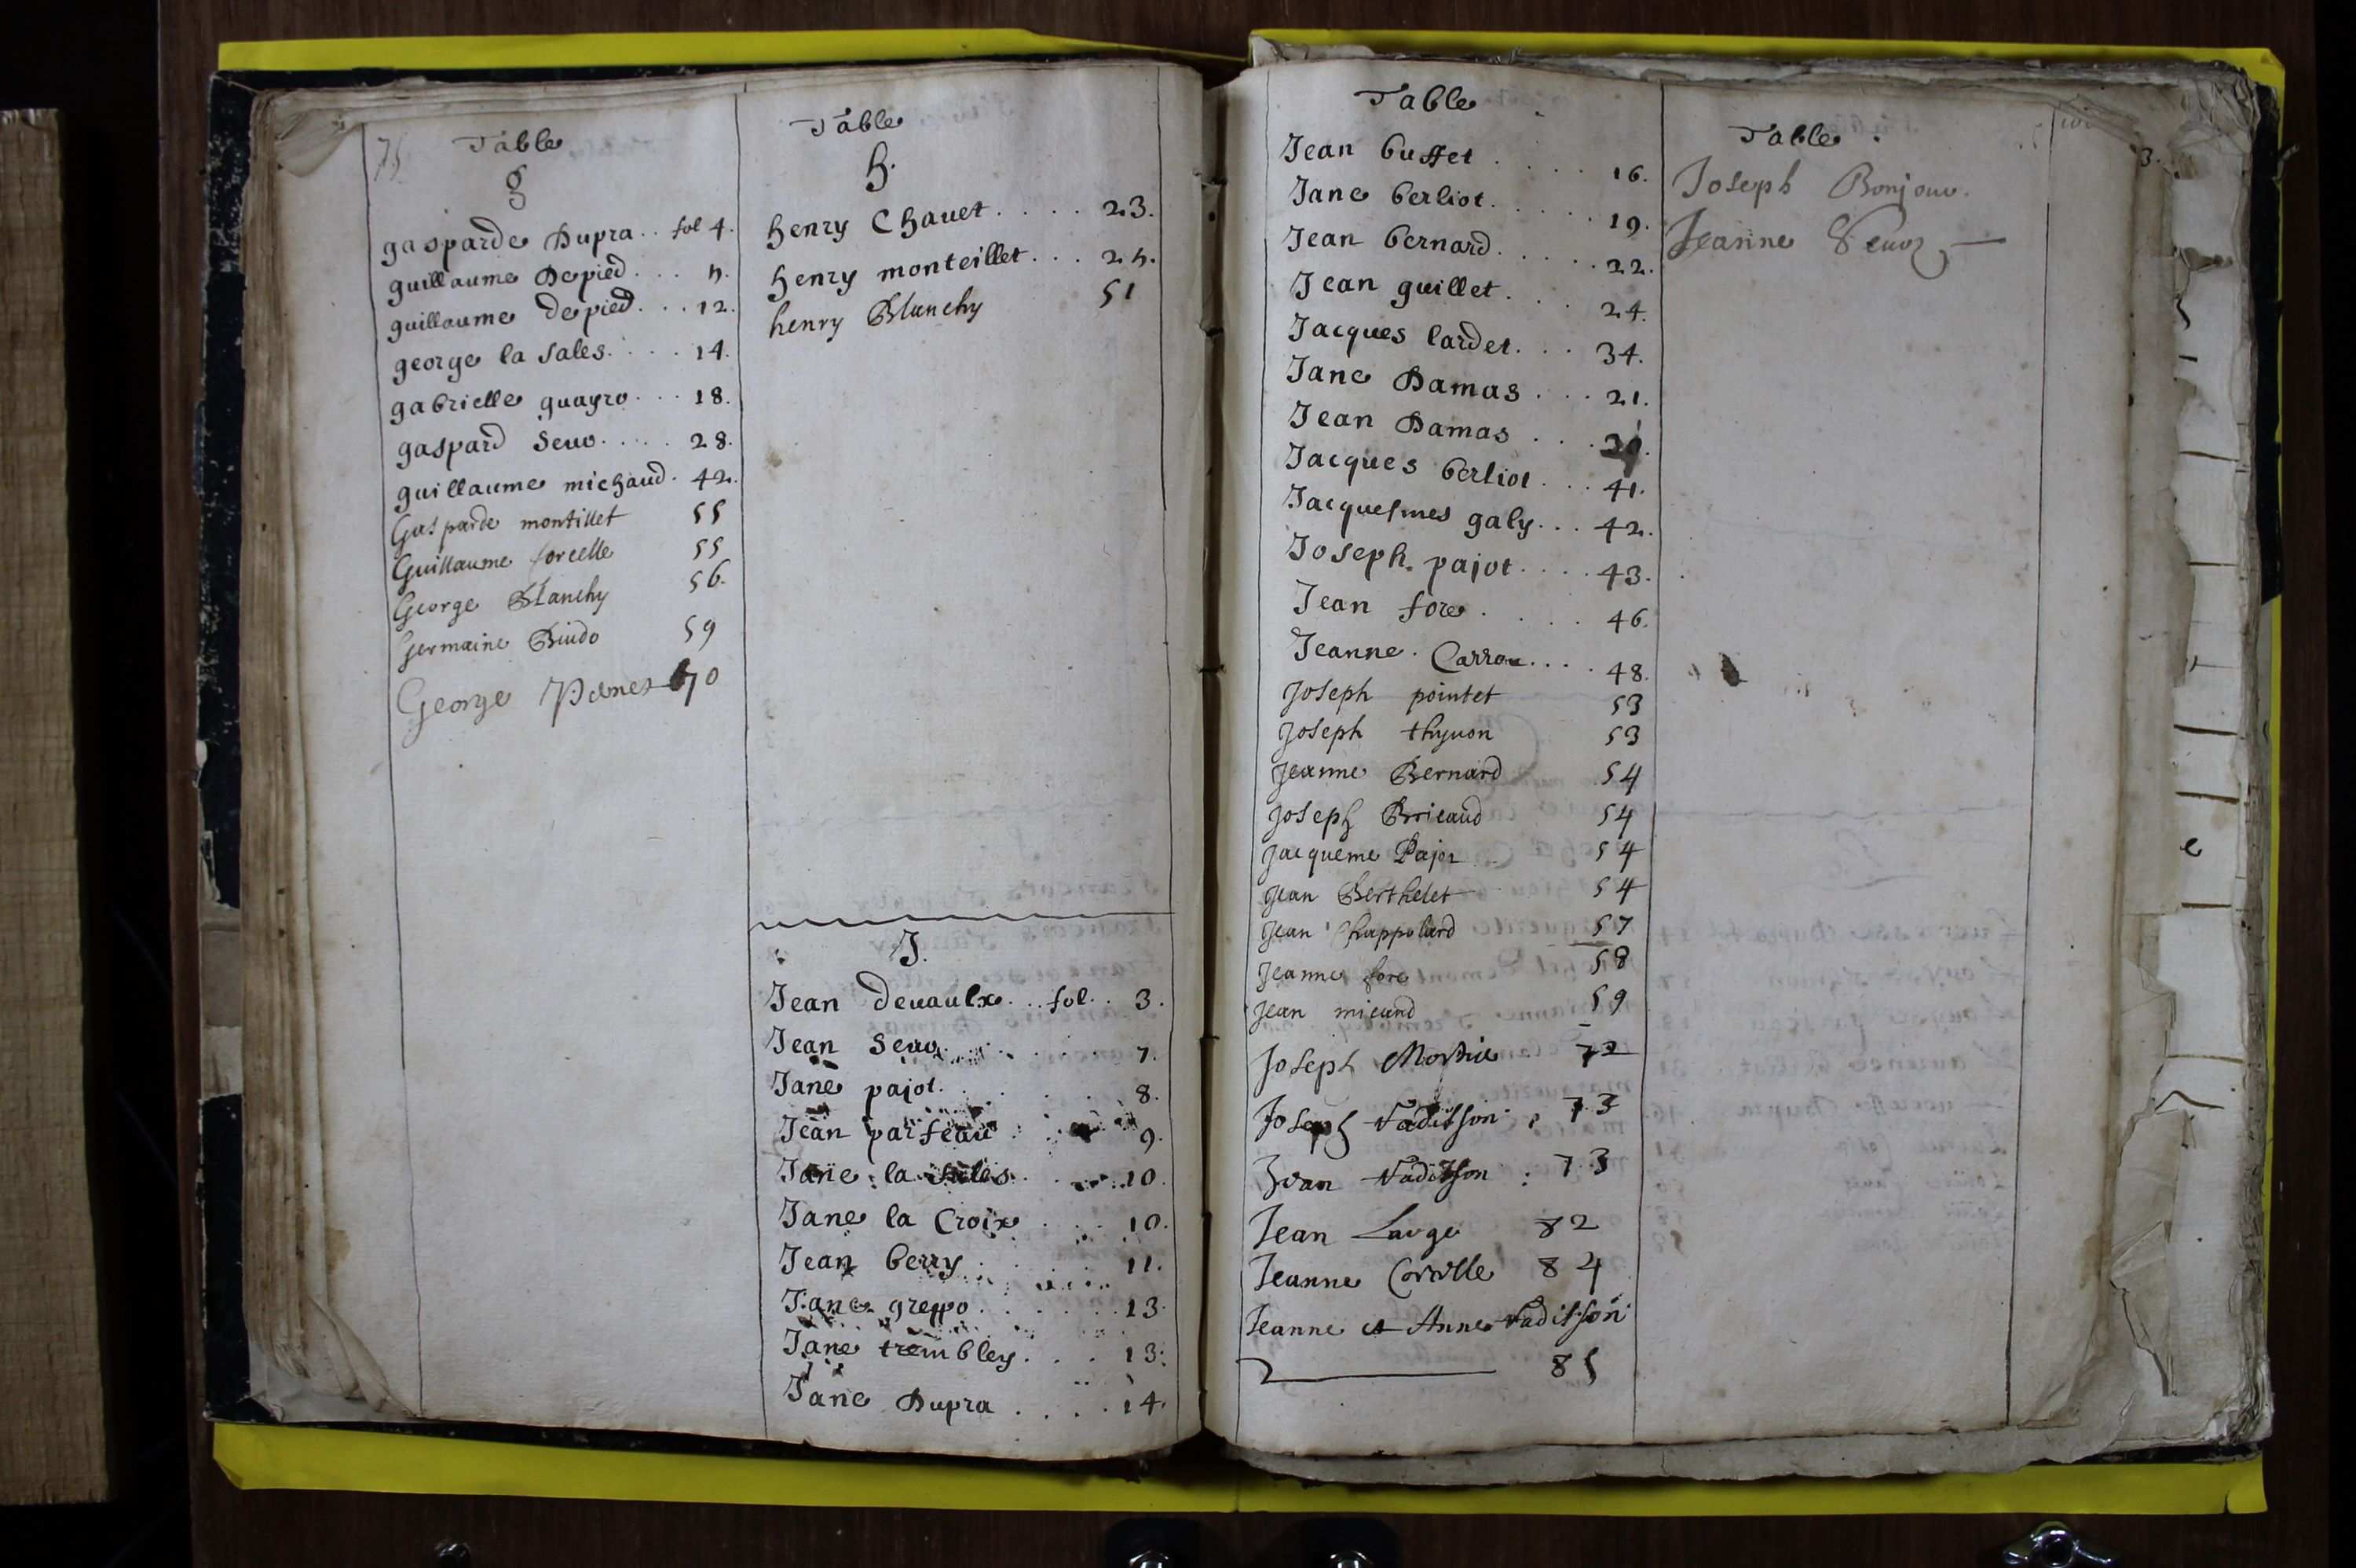 75 Table
g
gasparde Dupra . . fol 4.
guillaume Depied . . . 5.
guillaume depied . . . 12.
george la sales . . . . 14.
gabrielle guayro . . . 18.
gaspard Seuo . . . . . 28.
guillaume michaud . 42.
Gasparde montillet 55
Guillaume forcelle 55
George Blanchy 56.
Germaine Biudo 59
George 70
Table
h.
henry Chauet . . . . . 23.
henry monteillet . . . 25.
henry Blanchy 51
J.
Jean deuaulx . . . fol . . 3.
Jean Seuo . . . . . 7.
Jane pajot . . . . . 8.
Jean parfeau . . . 9.
Jane la sales . . . 10.
Jane la Croix . . . 10.
Jean berry . . . . . 11.
Jane greppo . . . . . . 13.
Jane trembley . . . . 13.
Jane Dupra . . . . 14.
Table
Jean buffet . . . . . 16.
Jane berliot . . . . . . 19.
Jean bernard . . . . . . 22.
Jean guillet . . . 24.
Jacques lardet . . . 34.
Jane Damas . . . . 21.
Jean Damas . . . .
Jacques berliot . . . 41.
Jacquesmes galy . . . 42.
Joseph pajot . . . . 43.
Jean fore . . . . . 46.
Jeanne . Carron . . . . 48.
Joseph pointet 53
Joseph thyuon 53
Jeanne Bernard 54
Joseph Bricaud 54
Jacqueme Pajot 54
Jean Berthelet 54
Jean Chappoland 57
Jeanne fore 58
Jean micand 59
Joseph 72
Joseph Vadisson 73
Jean Vadisson : 73
Jean Lauge 82
Jeanne 84
Jeanne et Anne Vadisson
85
Table .
Joseph Bonjour.
Jeanne